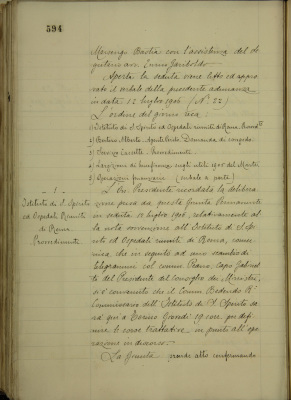 594
Marsengo Bastia con l'assistenza del
Ennio Gariboldo
Aperta la seduta viene letto ed appro-
vato il verbale della precedente adunanza
in data 12 luglio 1906 (N. 22)
L'ordine del giorno reca:
1) Istituto di S. Spirito ed Ospedali riuniti di Roma.
2) Alberto. Domanda di congedo
3) Provvedimenti
4) Largizioni di beneficenza sugli utili 1905 del Monte
5) Operazioni (verbale a parte)
- 1 -
Istituto di S. Spirito
ed Ospedali Riuniti
di Roma
Provvedimenti
L'On. Presidente ricordata la delibera-
zione presa da questa Giunta Permanente
in seduta luglio 1906, relativamente al
la nota convenzione coll'Istituto di S. Spi-
rito ed Ospedali riuniti di Roma, comu-
nica che in seguito ad uno scambio di
telegrammi col comm. Peano, Capo Gabinet-
to del Presidente del Consiglio dei Ministri,
si è convenuto che il Comm.
Commissario dell'Istituto di S. Spirito sa-
rà qui a Torino Giovedì 19 corr. per defi-
nire le corse trattative in punto all'ope-
razione in discorso.
La Giunta prende atto confermando